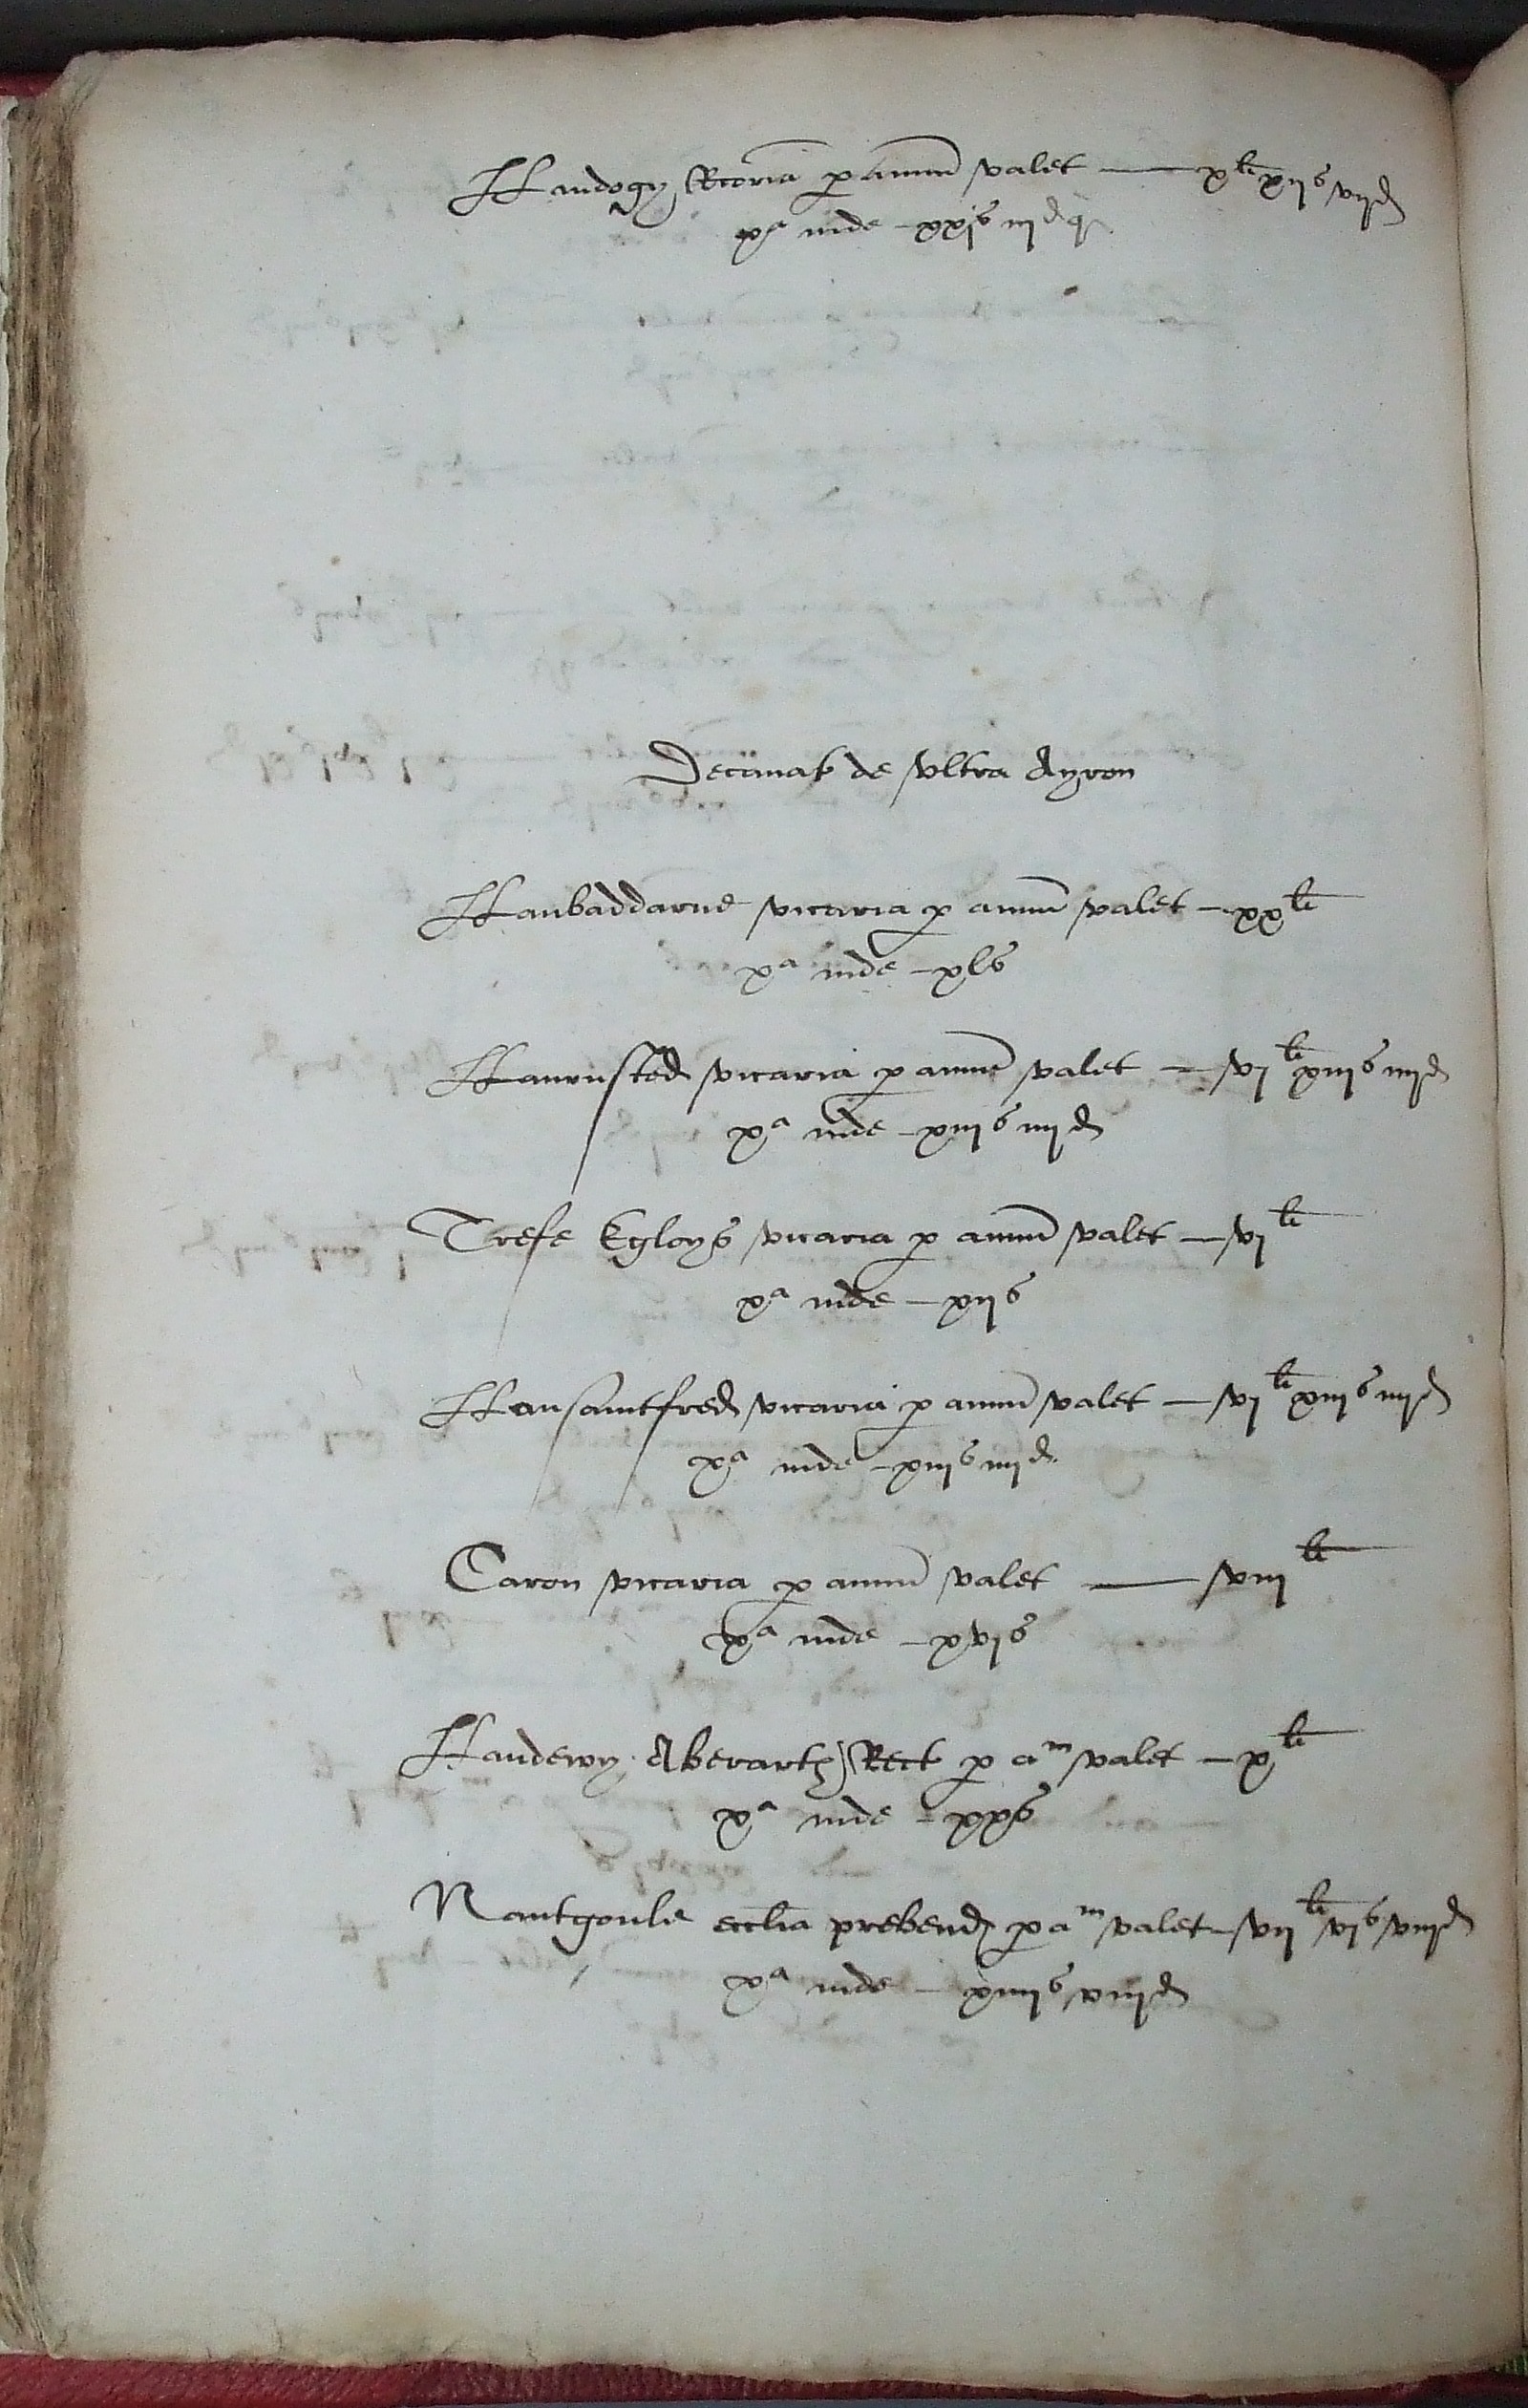 Llandogy Rcoria p annu valet — xli xijs vijd
xa inde – xxjs iijd q
Decanat de vltra Ayron
Llanbaddarne vicaria p annu valet – xxli
xa inde – xls
Llanrusted vicaria p annu valet – vjli xiijs iiijd
xa inde – xiijs iiijd
Trefe Egloys vicaria p annu valet – vjli
xa inde – xijs
Llansaintfred vicaria p annu valet – vjli xiijs iiijd
xa inde – xiijs iiijd
Caron vicaria p annu valet — viijli
xa inde – xvjs
Llandewy Aberarth Rect p am valet – xli
xa inde – xxs
Nantgonle ecclia prebend p am valet – vijli vjs viijd
xa inde – xiiijs viijd